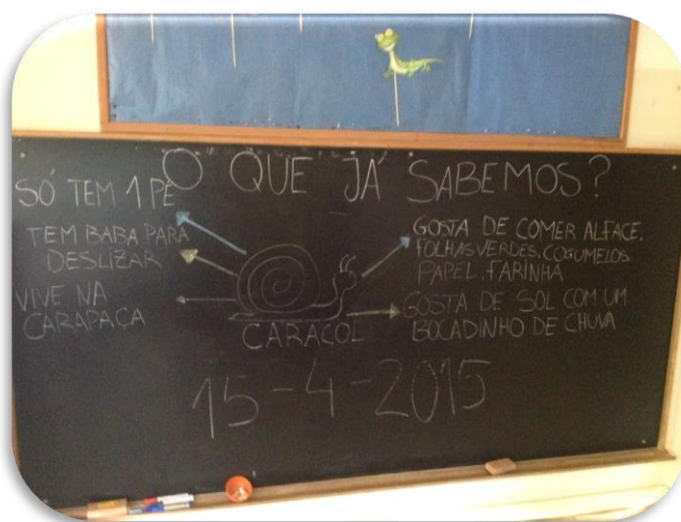 O QUE JÁ SABEMOS?
SÓ TEM 1 PÉ
TEM BABA PARA
DESLIZAR
VIVE NA
CARAPAÇA
CARACOL
GOSTA DE COMER ALFACE,
FOLHAS VERDES, COGUMELOS
PAPEL, FARINHA
GOSTA DE SOL COM UM
BOCADINHO DE CHUVA
15-4-2015